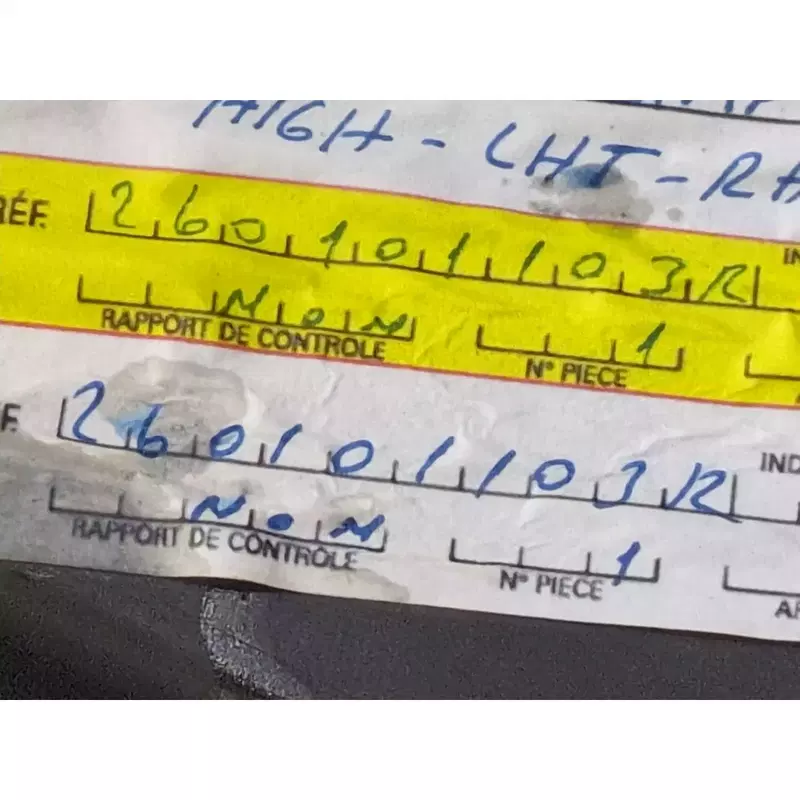 HIGH - LHT - RH
RÉF. 260101103R
NON 1
RAPPORT DE CONTRÔLE N° PIECE
F. 260101103R IND
NON 1
RAPPORT DE CONTRÔLE N° PIECE